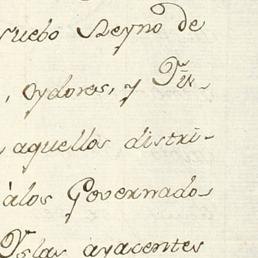 nuebo Reyno de
, oydores, y Fis-
aquellos distri-
à los Governado
Yslas ayacentes